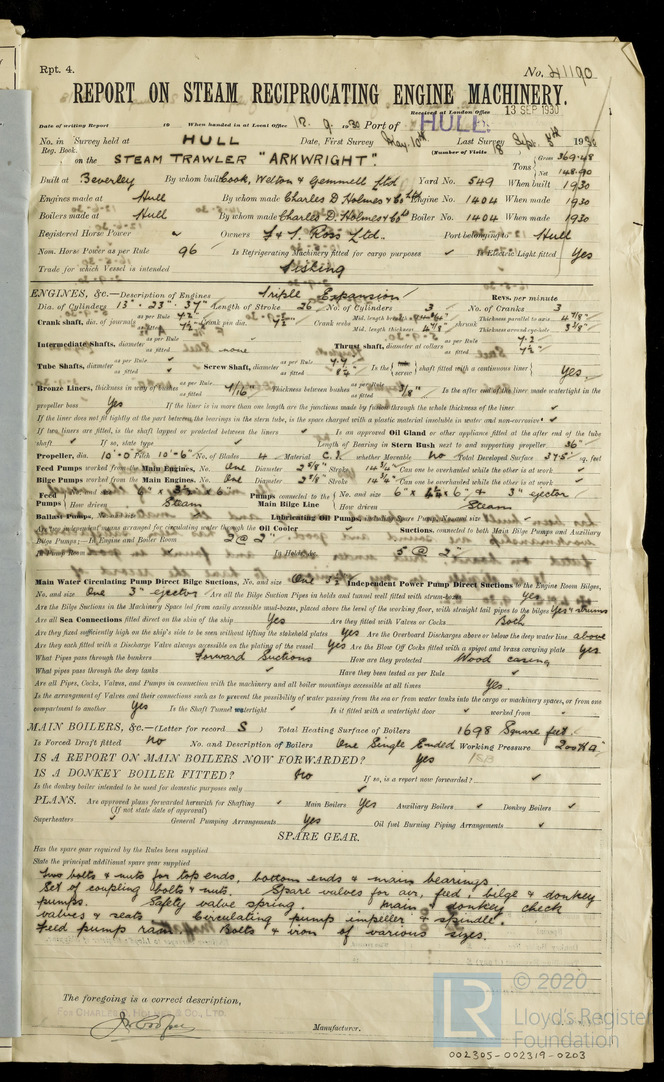 Rpt. 4. No. 41190
REPORT ON STEAM RECIPROCATING ENGINE MACHINERY.
Received at London Office 13 SEP 1930
Date of writing Report 19 When handed in at Local Office 12. 9. 1930 Port of HULL
No. in Survey held at HULL Date, First Survey May 10th Last Survey Sept. 8th 1930
Reg. Book. (Number of Visits
on the STEAM TRAWLER "ARKWRIGHT". Tons Gross 369.48
Net 148.90
Built at Beverley By whom built Cook, Welton & Gemmell Ltd Yard No. 549 When built 1930
Engines made at Hull By whom made Charles D. Holmes & Co Ltd Engine No. 1404 When made 1930
Boilers made at Hull By whom made Charles D. Holmes & Co Ltd Boiler No. 1404 When made 1930
Registered Horse Power Owners Ross Ltd. Port belonging to Hull
Nom. Horse Power as per Rule 96 Is Refrigerating Machinery fitted for cargo purposes Is Electric Light fitted Yes
Trade for which Vessel is intended Fishing
ENGINES, &c.—Description of Engines Triple Expansion Revs. per minute
Dia. of Cylinders 13" - 23" - 37" Length of Stroke 26 No. of Cylinders 3 No. of Cranks 3
Crank shaft, dia. of journals as per Rule 7.2 as fitted 7½" Crank pin dia. 7½" Crank webs Mid. length thickness 4⅞" shrunk Thickness parallel to axis 4⅞" Thickness around eye-hole 3⅜"
Intermediate Shafts, diameter as per Rule as fitted none Thrust shaft, diameter at collars as per Rule 7.2 as fitted 7½"
Tube Shafts, diameter as per Rule as fitted Screw Shaft, diameter as per Rule as fitted Is the screw shaft fitted with a continuous liner Yes
Bronze Liners, thickness in way of bushes as per Rule as fitted Thickness between bushes as per Rule as fitted 3/8" Is the after end of the liner made watertight in the
propeller boss Yes If the liner is in more than one length are the junctions made by fusion through the whole thickness of the liner
If the liner does not fit tightly at the part between the bearings in the stern tube, is the space charged with a plastic material insoluble in water and non-corrosive
If two liners are fitted, is the shaft lapped or protected between the liners Is an approved Oil Gland or other appliance fitted at the after end of the tube
shaft If so, state type Length of Bearing in Stern Bush next to and supporting propeller 36"
Propeller, dia. 10'-0" Pitch 10'-6" No. of Blades 4 Material C.I. whether Moveable No Total Developed Surface 37.5 sq. feet
Feed Pumps worked from the Main Engines, No. One Diameter 2⅝" Stroke 14¾" Can one be overhauled while the other is at work
Bilge Pumps worked from the Main Engines, No. One Diameter 2⅝" Stroke 14¾" Can one be overhauled while the other is at work
Feed Pumps How driven Steam Pumps connected to the Main Bilge Line No. and size & 3" ejector How driven Steam
Ballast Pumps, Lubricating Oil Pumps,
Are two independent means arranged for circulating water through the Oil Cooler Suctions, connected to both Main Bilge Pumps and Auxiliary
Bilge Pumps;—In Engine and Boiler Room 2 @ 2"
In Holds, &c. 5 @ 2"
Main Water Circulating Pump Direct Bilge Suctions, No. and size One 3" Independent Power Pump Direct Suctions to the Engine Room Bilges,
No. and size One 3" ejector Are all the Bilge Suction Pipes in holds and tunnel well fitted with strum-boxes Yes
Are the Bilge Suctions in the Machinery Space led from easily accessible mud-boxes, placed above the level of the working floor, with straight tail pipes to the bilges Yes & strums
Are all Sea Connections fitted direct on the skin of the ship Yes Are they fitted with Valves or Cocks Both
Are they fixed sufficiently high on the ship's side to be seen without lifting the stokehold plates Yes Are the Overboard Discharges above or below the deep water line above
Are they each fitted with a Discharge Valve always accessible on the plating of the vessel Yes Are the Blow Off Cocks fitted with a spigot and brass covering plate Yes
What Pipes pass through the bunkers Forward Suctions How are they protected Wood casing
What pipes pass through the deep tanks Have they been tested as per Rule
Are all Pipes, Cocks, Valves, and Pumps in connection with the machinery and all boiler mountings accessible at all times Yes
Is the arrangement of Valves and their connections such as to prevent the possibility of water passing from the sea or from water tanks into the cargo or machinery spaces, or from one
compartment to another Yes Is the Shaft Tunnel watertight Is it fitted with a watertight door worked from
MAIN BOILERS, &c.—(Letter for record S) Total Heating Surface of Boilers 1698 Square feet.
Is Forced Draft fitted No No. and Description of Boilers One Single Ended Working Pressure 200
IS A REPORT ON MAIN BOILERS NOW FORWARDED? Yes 1SB
IS A DONKEY BOILER FITTED? No If so, is a report now forwarded?
Is the donkey boiler intended to be used for domestic purposes only
PLANS. Are approved plans forwarded herewith for Shafting Main Boilers Yes Auxiliary Boilers Donkey Boilers
(If not state date of approval)
Superheaters General Pumping Arrangements Yes Oil fuel Burning Piping Arrangements
SPARE GEAR.
Has the spare gear required by the Rules been supplied
State the principal additional spare gear supplied
Two bolts & nuts for top ends, bottom ends & main bearings.
Set of coupling bolts & nuts. Spare valves for air, feed, bilge & donkey
pumps. Safety valve spring. Main & donkey check
valves & seats. Circulating pump impeller & spindle.
Feed pump ram. Bolts & iron of various sizes.
The foregoing is a correct description,
FOR CHARLES D. HOLMES & CO., LTD.
Manufacturer.
© 2020
LR Lloyd's Register
Foundation
002305-002319-0203